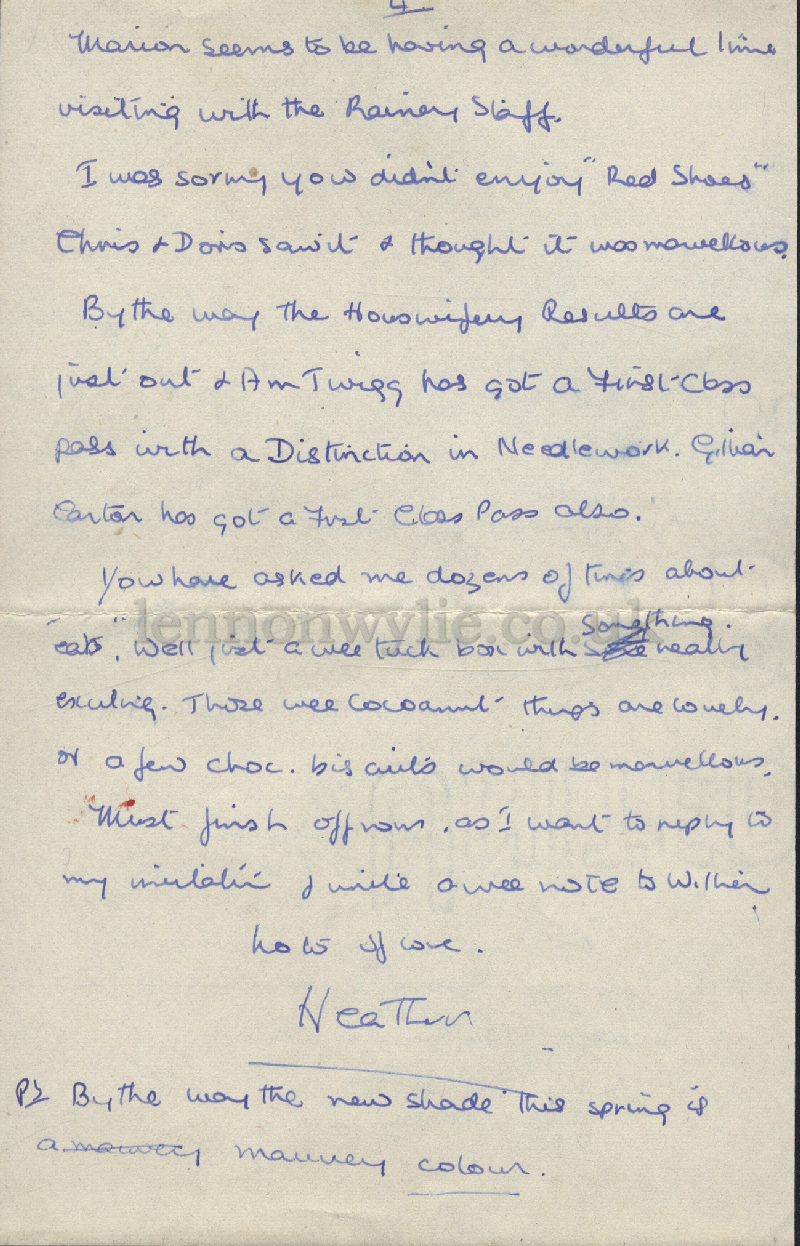 4
Marion seems to be having a wonderful time
visiting with the Rainey Staff.
I was sorry you didn't enjoy "Red Shoes"
Chris & Doris saw it & thought it was marvellous.
By the way the Houswifery Results are
just out & Ann Twigg has got a First-Class
pass with a Distinction in Needlework. Gillian
Carter has got a First Class Pass also.
You have asked me dozens of times about
"eats". Well just a wee tuck box with something really
exciting. Those wee Cocoanut things are lovely.
or a few choc. biscuits would be marvellous.
Must finish off now, as I want to reply to
my invitation & write a wee note to
lots of love.
Heather
PS By the way the new shade this spring is
a mauvey colour.
lennonwylie.co.uk